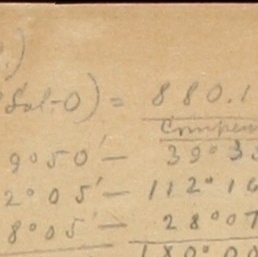 .)
Sal-0) = 880.1
Compen
9°50'— 39°33
2°05'— 112°16
8°05'— 28°07
180°00